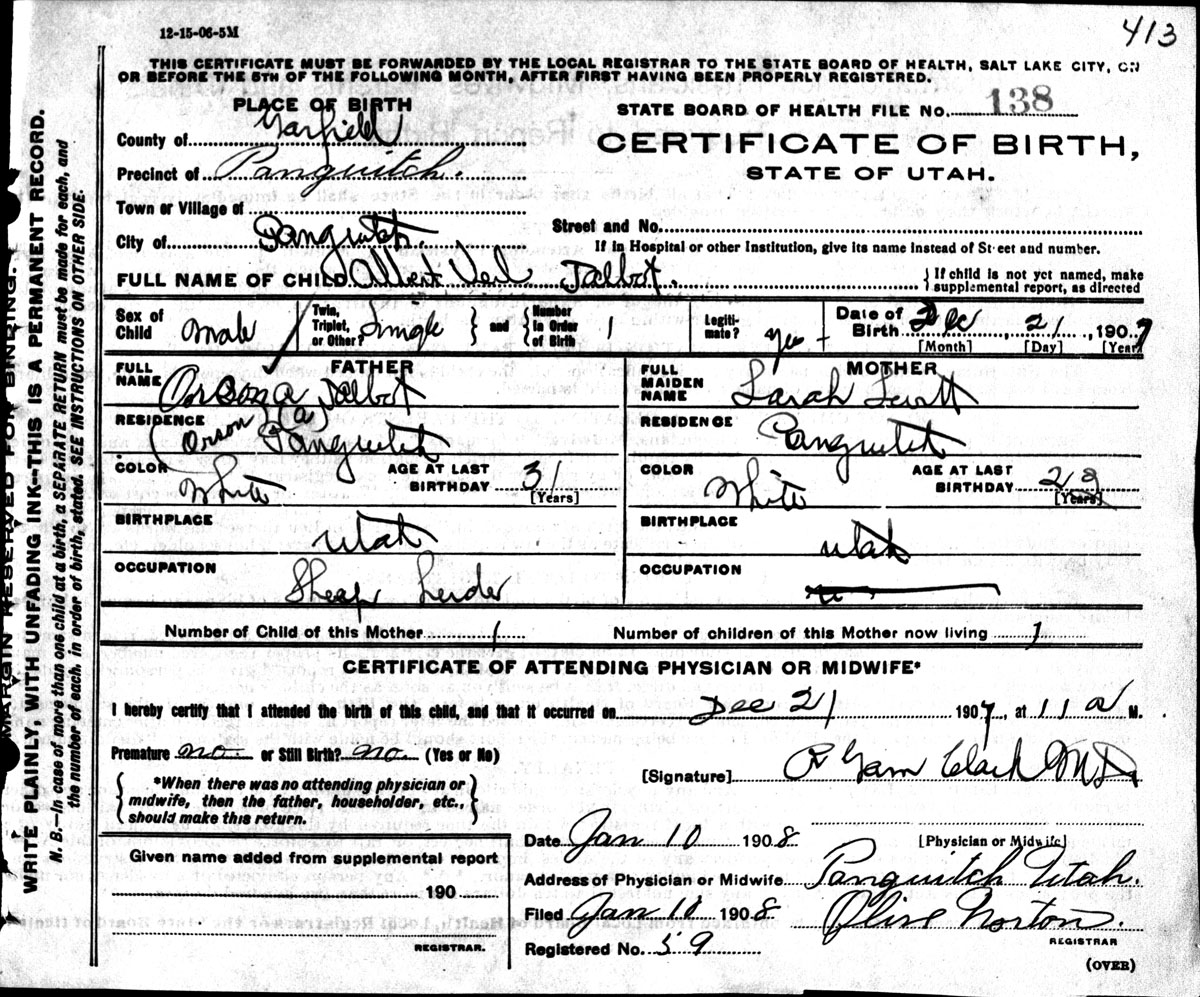 12-15-06-5M
413
THIS CERTIFICATE MUST BE FORWARDED BY THE LOCAL REGISTRAR TO THE STATE BOARD OF HEALTH, SALT LAKE CITY, ON
OR BEFORE THE 5TH OF THE FOLLOWING MONTH, AFTER FIRST HAVING BEEN PROPERLY REGISTERED.
PLACE OF BIRTH
STATE BOARD OF HEALTH FILE No. 138
County of Garfield
CERTIFICATE OF BIRTH,
Precinct of Panguitch.
STATE OF UTAH.
Town or Village of
Street and No.
City of Panguitch.
If in Hospital or other Institution, give its name instead of Street and number.
FULL NAME OF CHILD Albert Neil Talbot.
If child is not yet named, make
supplemental report, as directed
Sex of Child Male
Twin, Triplet, or Other? Single
and Number in Order of Birth 1
Legiti-mate? yes
Date of Birth Dec 21, 1907
[Month] [Day] [Year]
FATHER
FULL NAME Orson A Talbot
(Orson A)
RESIDENCE Panguitch
COLOR White
AGE AT LAST BIRTHDAY 31
[Years]
BIRTHPLACE
Utah
OCCUPATION
Sheap herder
MOTHER
FULL MAIDEN NAME Sarah
RESIDENCE Panguitch
COLOR White
AGE AT LAST BIRTHDAY
[Years]
BIRTHPLACE
Utah
OCCUPATION
Number of Child of this Mother 1
Number of children of this Mother now living 1
CERTIFICATE OF ATTENDING PHYSICIAN OR MIDWIFE*
I hereby certify that I attended the birth of this child, and that it occurred on Dec 21 1907, at 11 a M.
Premature no or Still Birth? no. (Yes or No)
[Signature] R Garn Clark M.D.
*When there was no attending physician or
midwife, then the father, householder, etc.,
should make this return.
[Physician or Midwife]
Date Jan 10 1908
Given name added from supplemental report
Address of Physician or Midwife Panguitch Utah.
190
Filed Jan 10 1908 Olive Norton.
REGISTRAR.
REGISTRAR
Registered No. 59
(OVER)
MARGIN RESERVED FOR BINDING.
WRITE PLAINLY, WITH UNFADING INK—THIS IS A PERMANENT RECORD.
N. B.—In case of more than one child at a birth, a SEPARATE RETURN must be made for each, and
the number of each, in order of birth, stated. SEE INSTRUCTIONS ON OTHER SIDE.